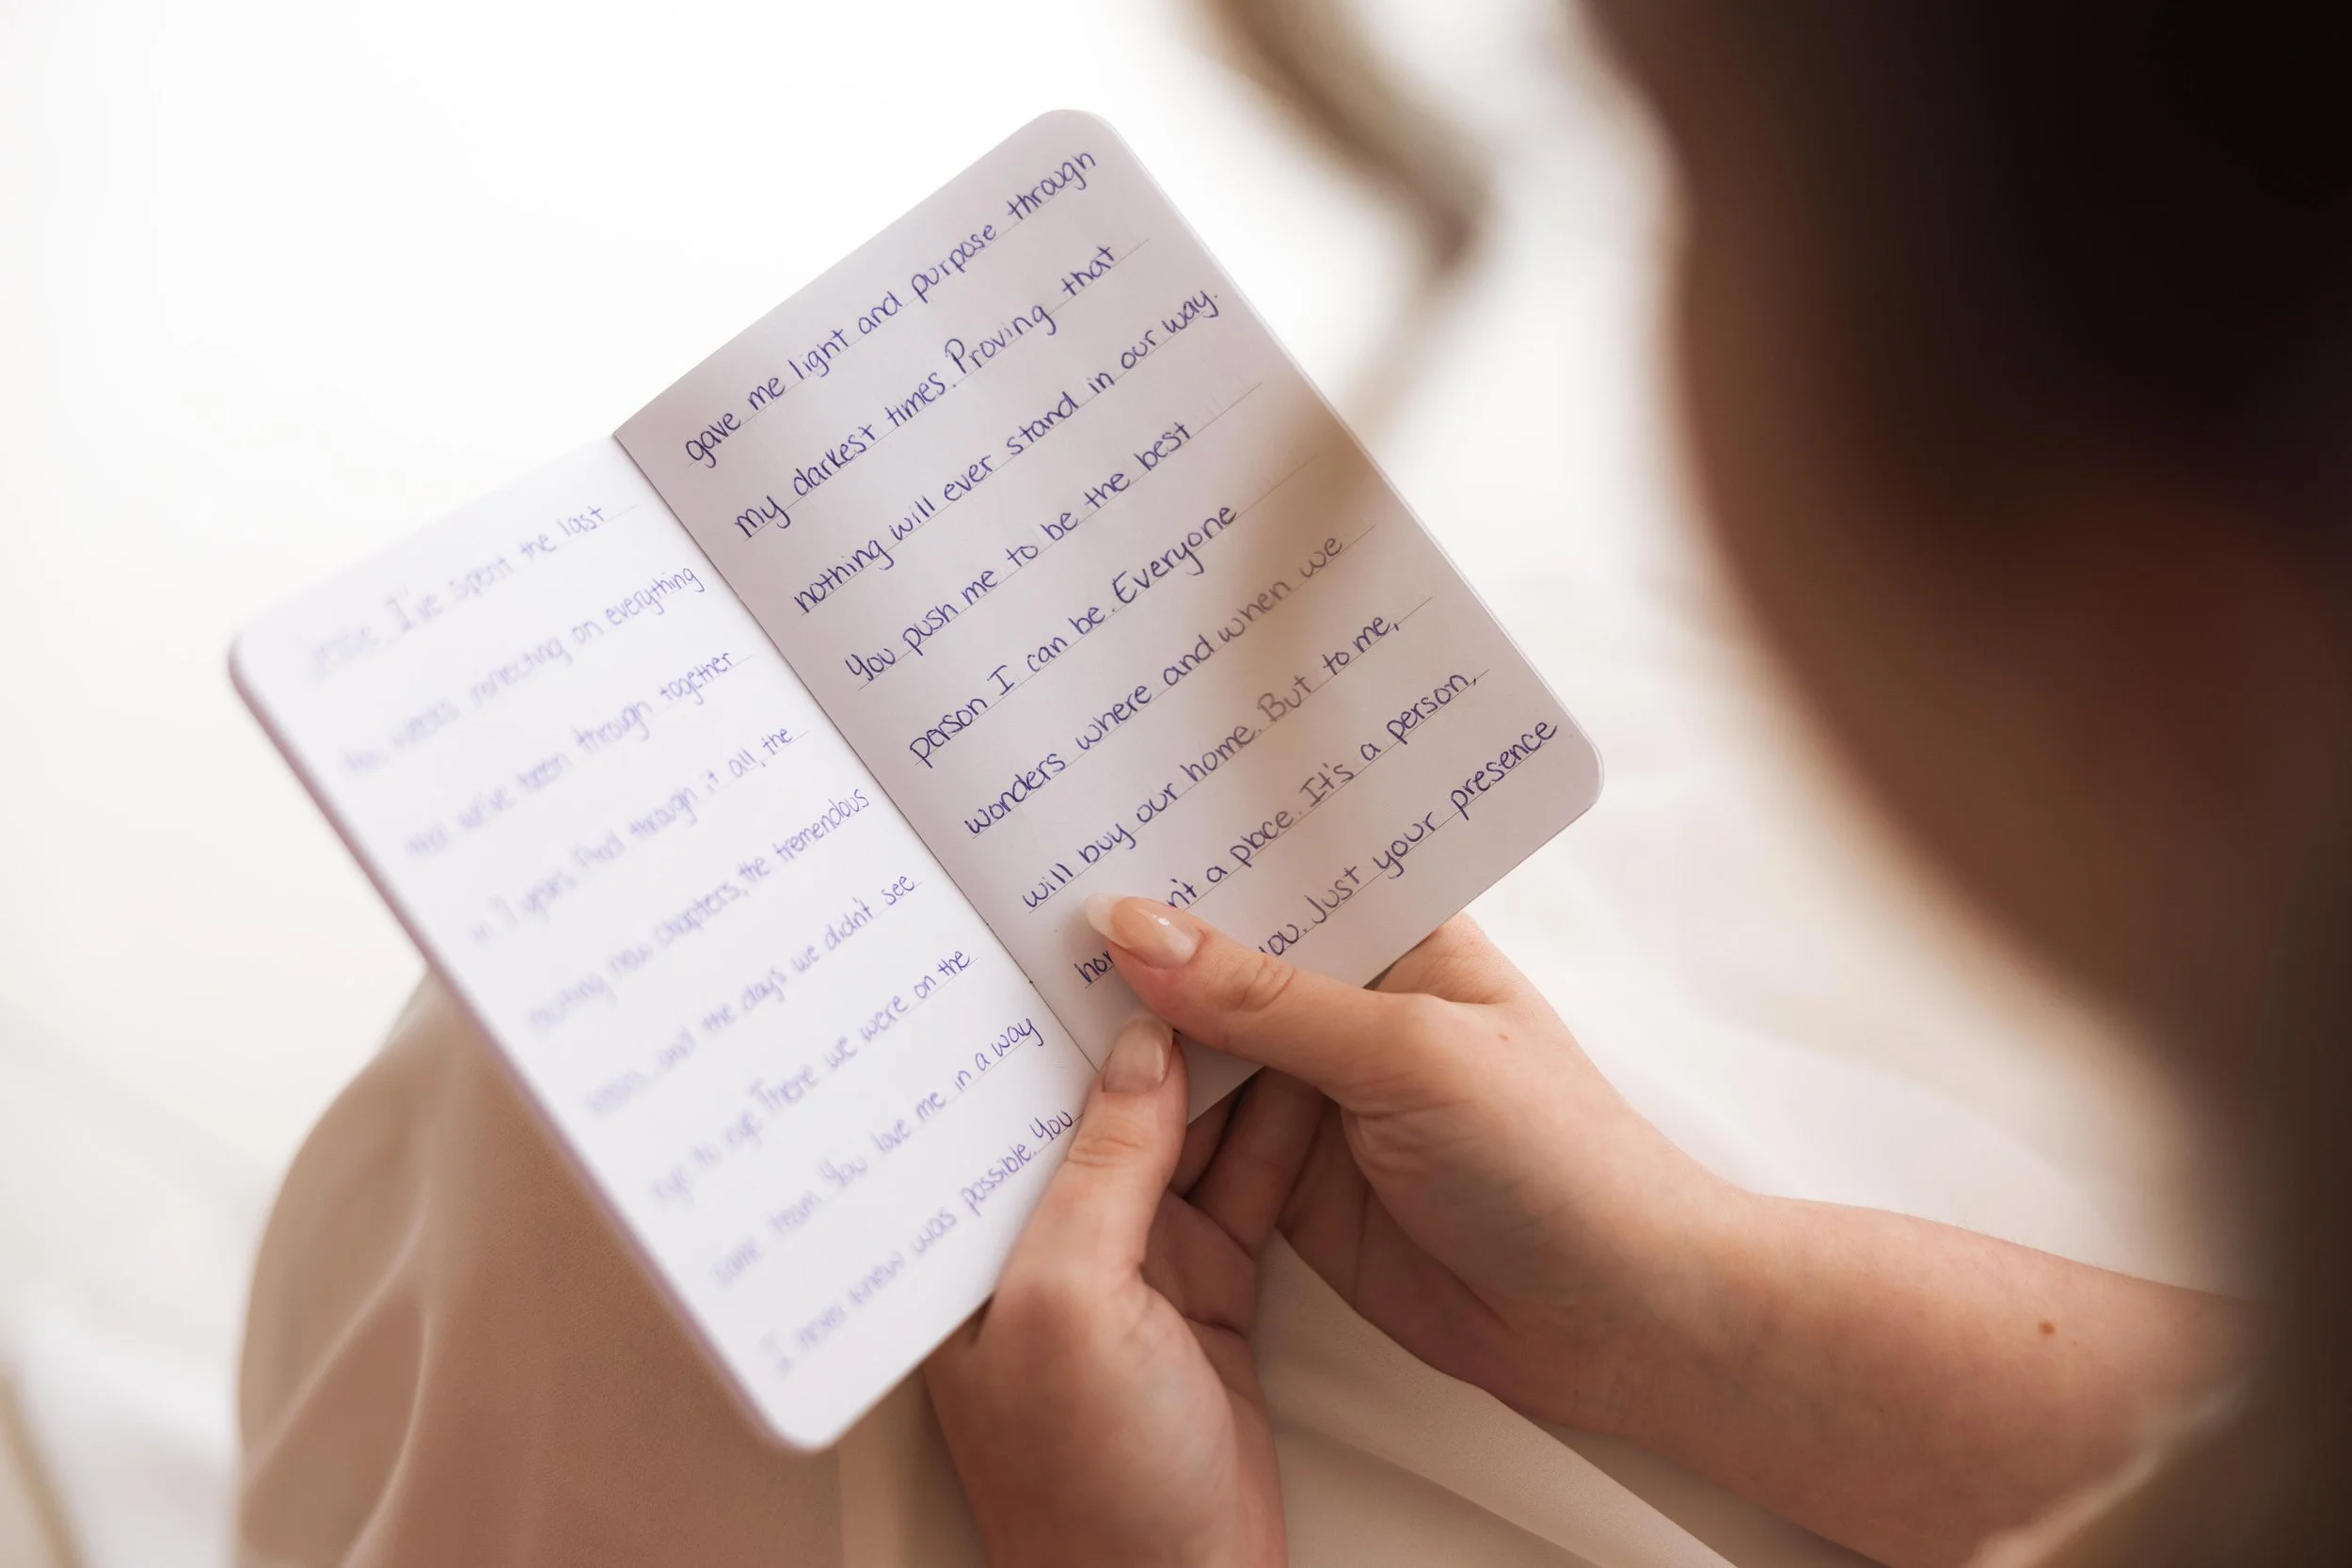 I've spent the last
reflecting on everything
that we've been through together
in 7 years. And through it all, the
new chapters, the tremendous
and the days we didn't see
eye to eye. There we were on the
same team. You love me in a way
I never knew was possible. You
gave me light and purpose through
my darkest times. Proving that
nothing will ever stand in our way.
You push me to be the best
person I can be. Everyone
wonders where and when we
will buy our home. But to me,
a place. It's a person,
Just your presence